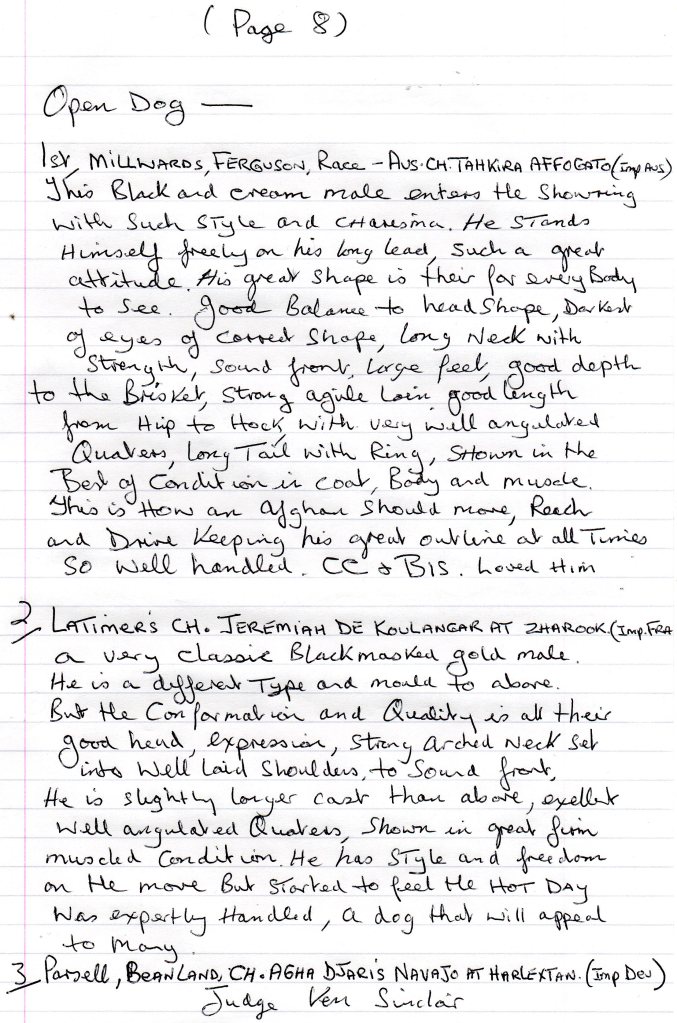 (Page 8)
Open Dog —
1st, MILLWARDS, FERGUSON, Race – AUS.CH.TAHKIRA AFFOGATO (Imp AUS)
This Black and cream male enters the Showring
with Such STyle and CHaresma. He STands
Himself freely on his long lead, Such a great
attitude. His great Shape is their for every Body
to See. Good Balance to head Shape, Darkest
of eyes of correct Shape, Long Neck with
Strength, Sound front, large feet, good depth
to the Brisket, Strong agile Loin, good length
from Hip to Hock, with very well angulated
Quaters, Long Tail with Ring, SHown in the
Best of Condition in coat, Body and muscle.
This is How an Afghan should move, Reach
and Drive Keeping his great outline at all Times
So Well handled. CC & BIS. Loved Him
2, LATIMER'S CH. JEREMIAH DE KOULANGAR AT ZHAROOK. (Imp. FRA
a very classic Blackmasked gold male.
He is a different Type and mould to above.
But the Conformation and Quality is all their
good head, expression, Strong Arched Neck Set
into Well Laid Shoulders, to Sound front,
He is slightly longer cast than above, exellet
Well angulated Quaters, Shown in great firm
muscled Condition. He has STyle and freedom
on the move But STarted to feel the HOT DAY
Was expertly Handled, a dog that will appeal
to Many.
3, Parsell, BEANLAND, CH. AGHA DJARI'S NAVAJO AT HARLEXTAN. (Imp Dev)
Judge Ken Sinclair